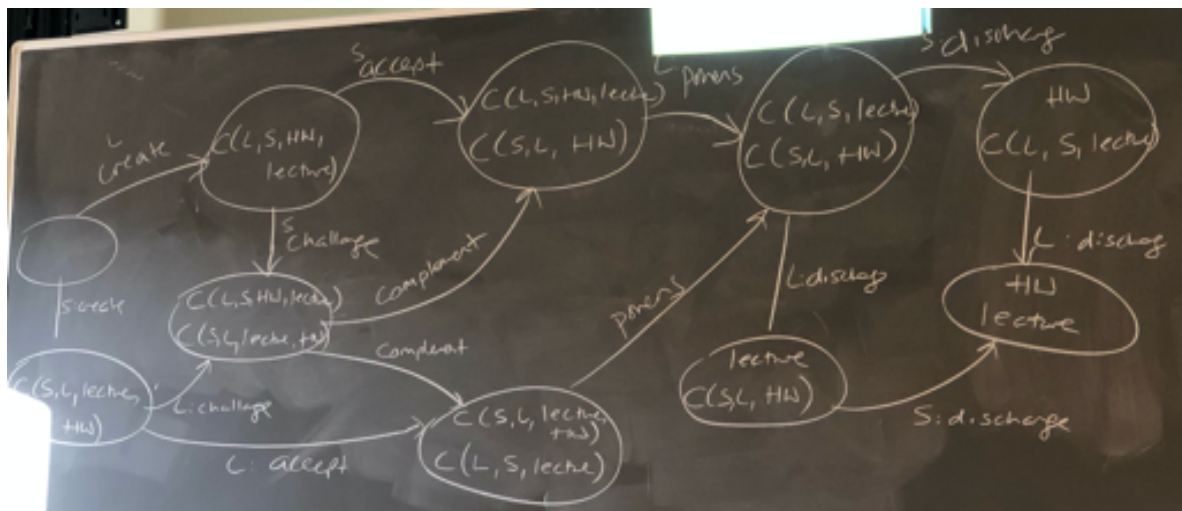 L
create
C(L,S,HW,
lecture)
S
accept
C(L,S,HW,lectur)
C(S,L, HW)
L
ponens
C(L,S,lectur)
C(S,L, HW)
S:discharg
HW
C(L, S, lectur)
L: discharg
HW
lecture
S
challage
C(L,S,HW,lectur)
C(S,L,lectur, HW)
Complement
Complemnt
S:create
C(S,L,lectur,
HW)
L:challage
L: accept
C(S,L, lectur,
HW)
C(L,S,lectur)
ponens
L:discharg
lecture
C(S,L, HW)
S:discharge